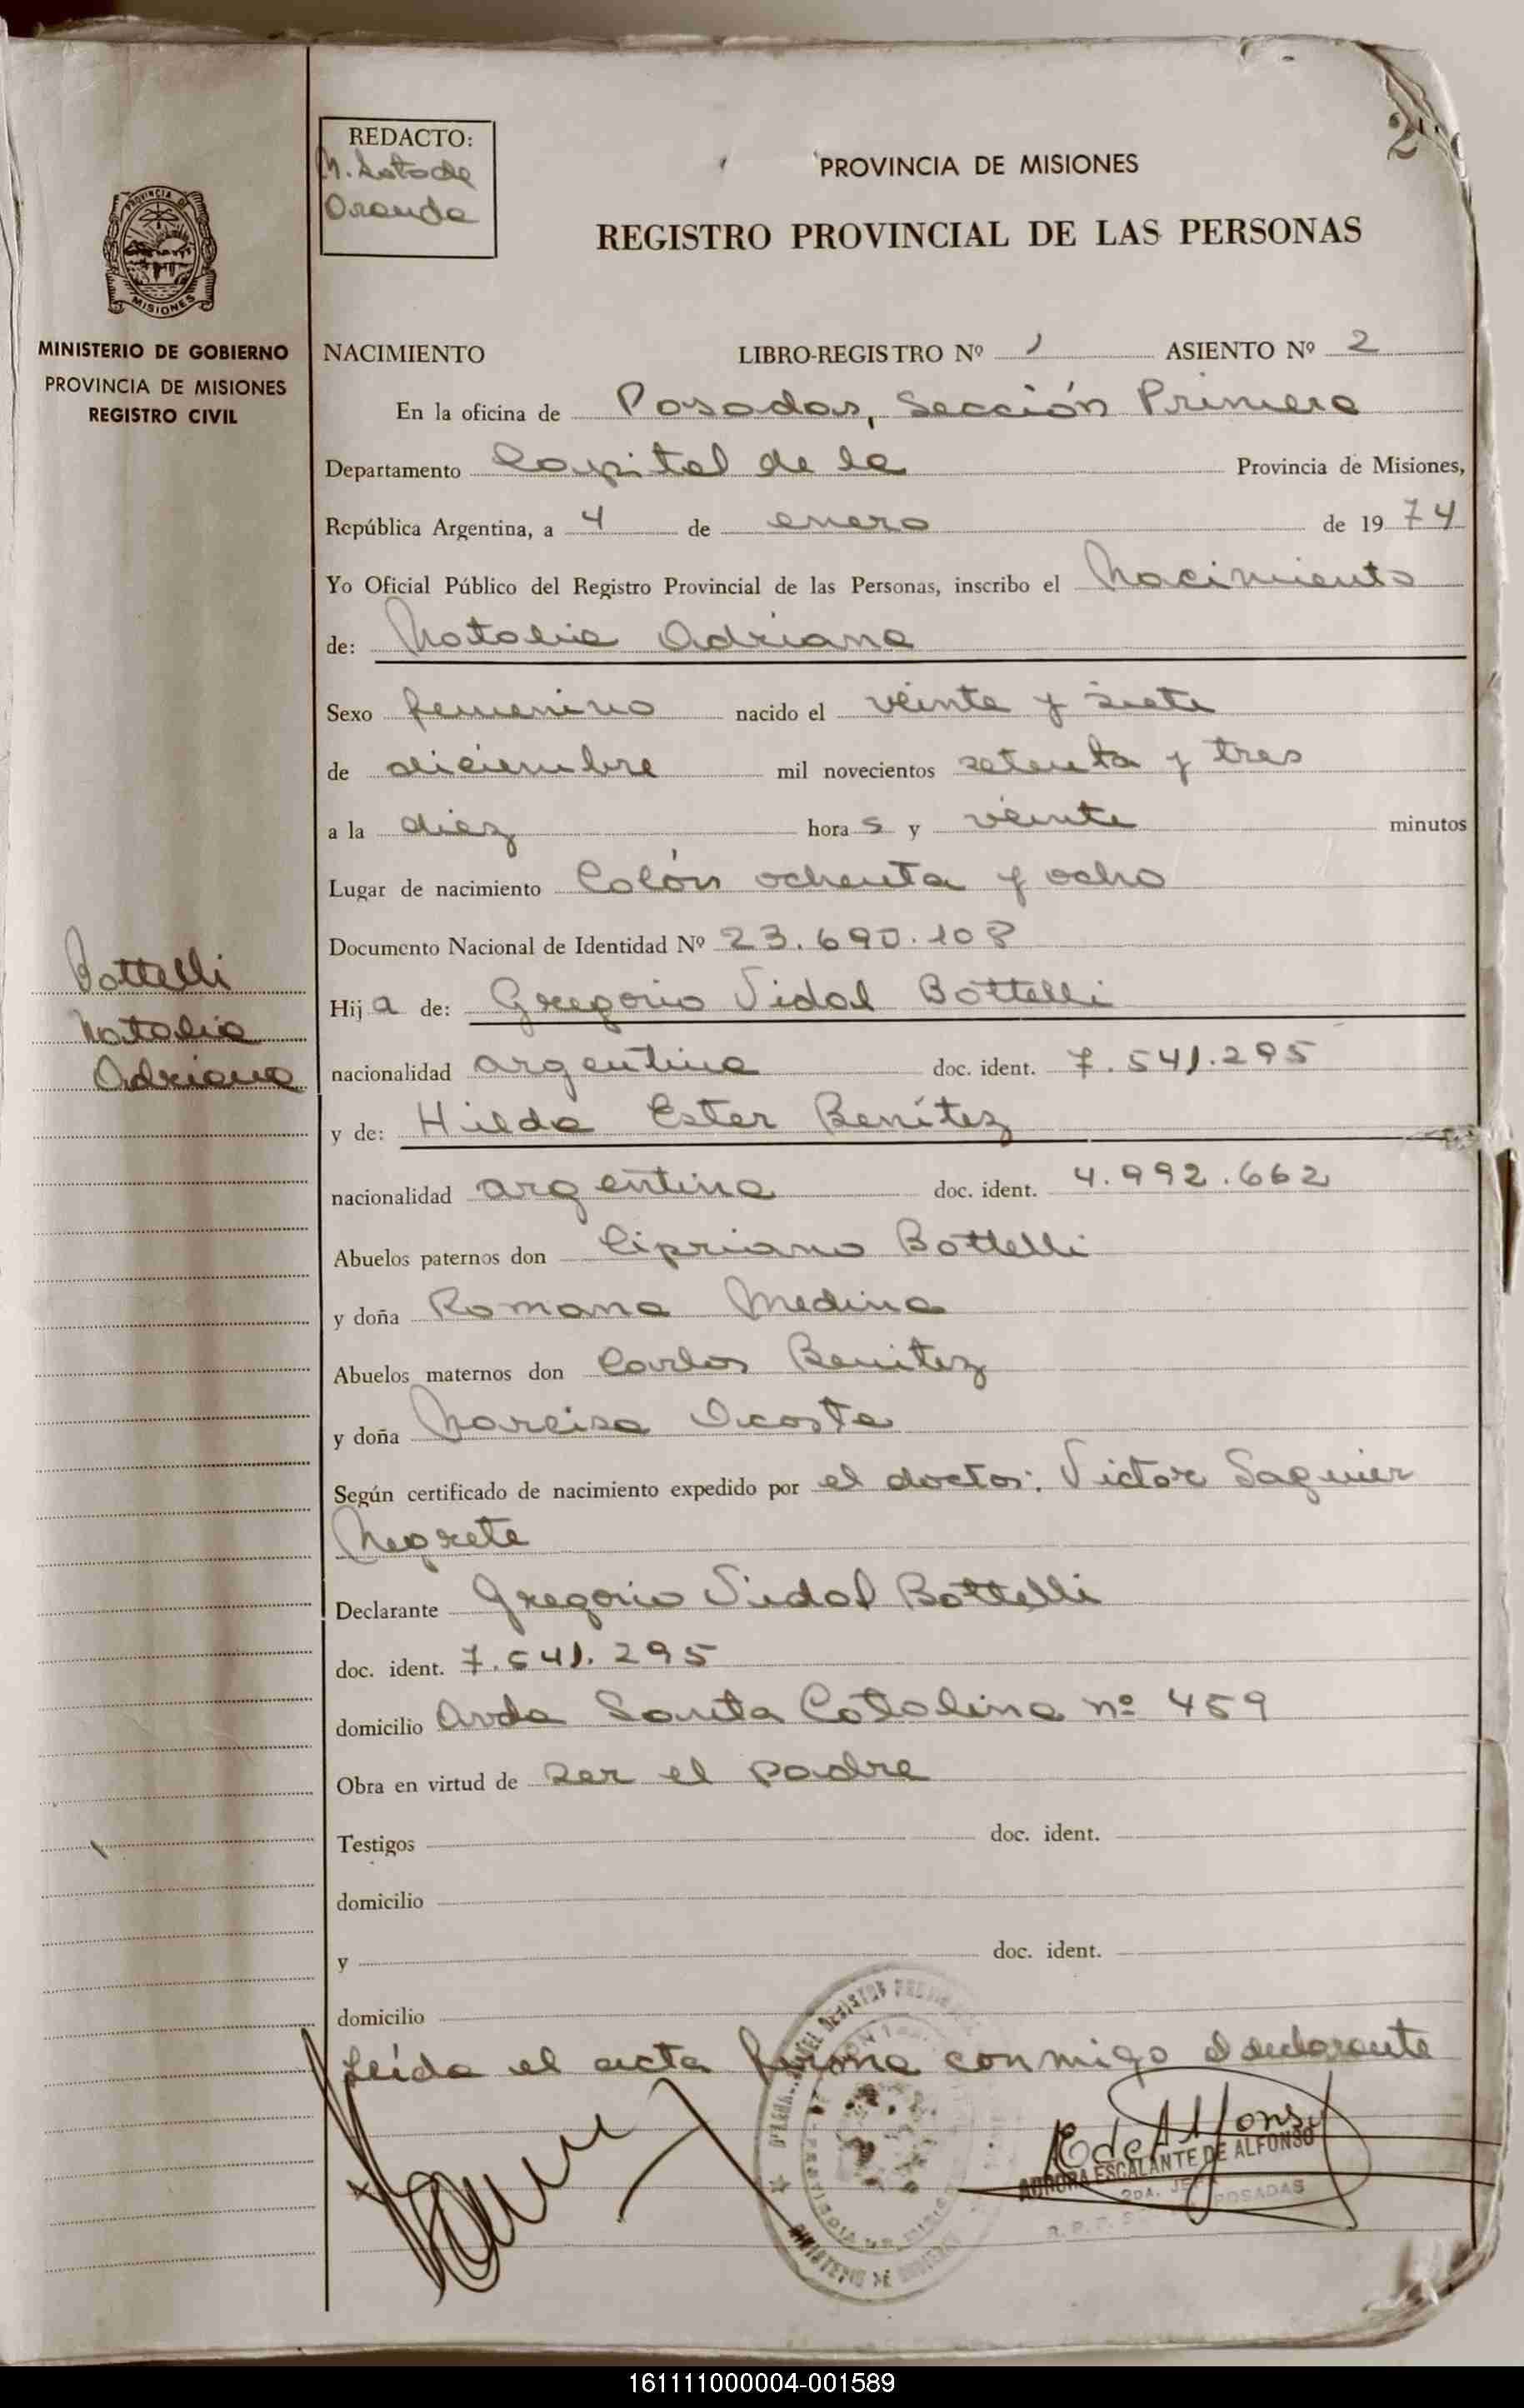 2
REDACTO:
M. Soto de
Oranda
PROVINCIA DE MISIONES
REGISTRO PROVINCIAL DE LAS PERSONAS
PROVINCIA DE
MISIONES
MINISTERIO DE GOBIERNO
PROVINCIA DE MISIONES
REGISTRO CIVIL
NACIMIENTO LIBRO-REGISTRO Nº 1 ASIENTO Nº 2
En la oficina de Posadas, Sección Primera
Departamento Capital de la Provincia de Misiones,
República Argentina, a 4 de enero de 1974
Yo Oficial Público del Registro Provincial de las Personas, inscribo el Nacimiento
de: Natalia Adriana
Sexo femenino nacido el veinte y siete
de diciembre mil novecientos setenta y tres
a la diez horas y veinte minutos
Lugar de nacimiento Colón ochenta y ocho
Documento Nacional de Identidad Nº 23.690.108
Bottelli
Natalia
Adriana
Hija de: Gregorio Vidal Bottelli
nacionalidad argentina doc. ident. 7.541.295
y de: Hilda Ester Benítez
nacionalidad argentina doc. ident. 4.992.662
Abuelos paternos don Cipriano Bottelli
y doña Romana Medina
Abuelos maternos don Carlos Benitez
y doña Narcisa Acosta
Según certificado de nacimiento expedido por el doctor: Victor Saguier
Negrete
Declarante Gregorio Vidal Bottelli
doc. ident. 7.541.295
domicilio Avda Santa Catalina nº 459
Obra en virtud de ser el padre
Testigos doc. ident.
domicilio
y doc. ident.
domicilio
Leída el acta firma conmigo el declarante
E de Alfonso
AURORA ESCALANTE DE ALFONSO
2DA. JEFE POSADAS
MINISTERIO DE GOBIERNO
161111000004-001589